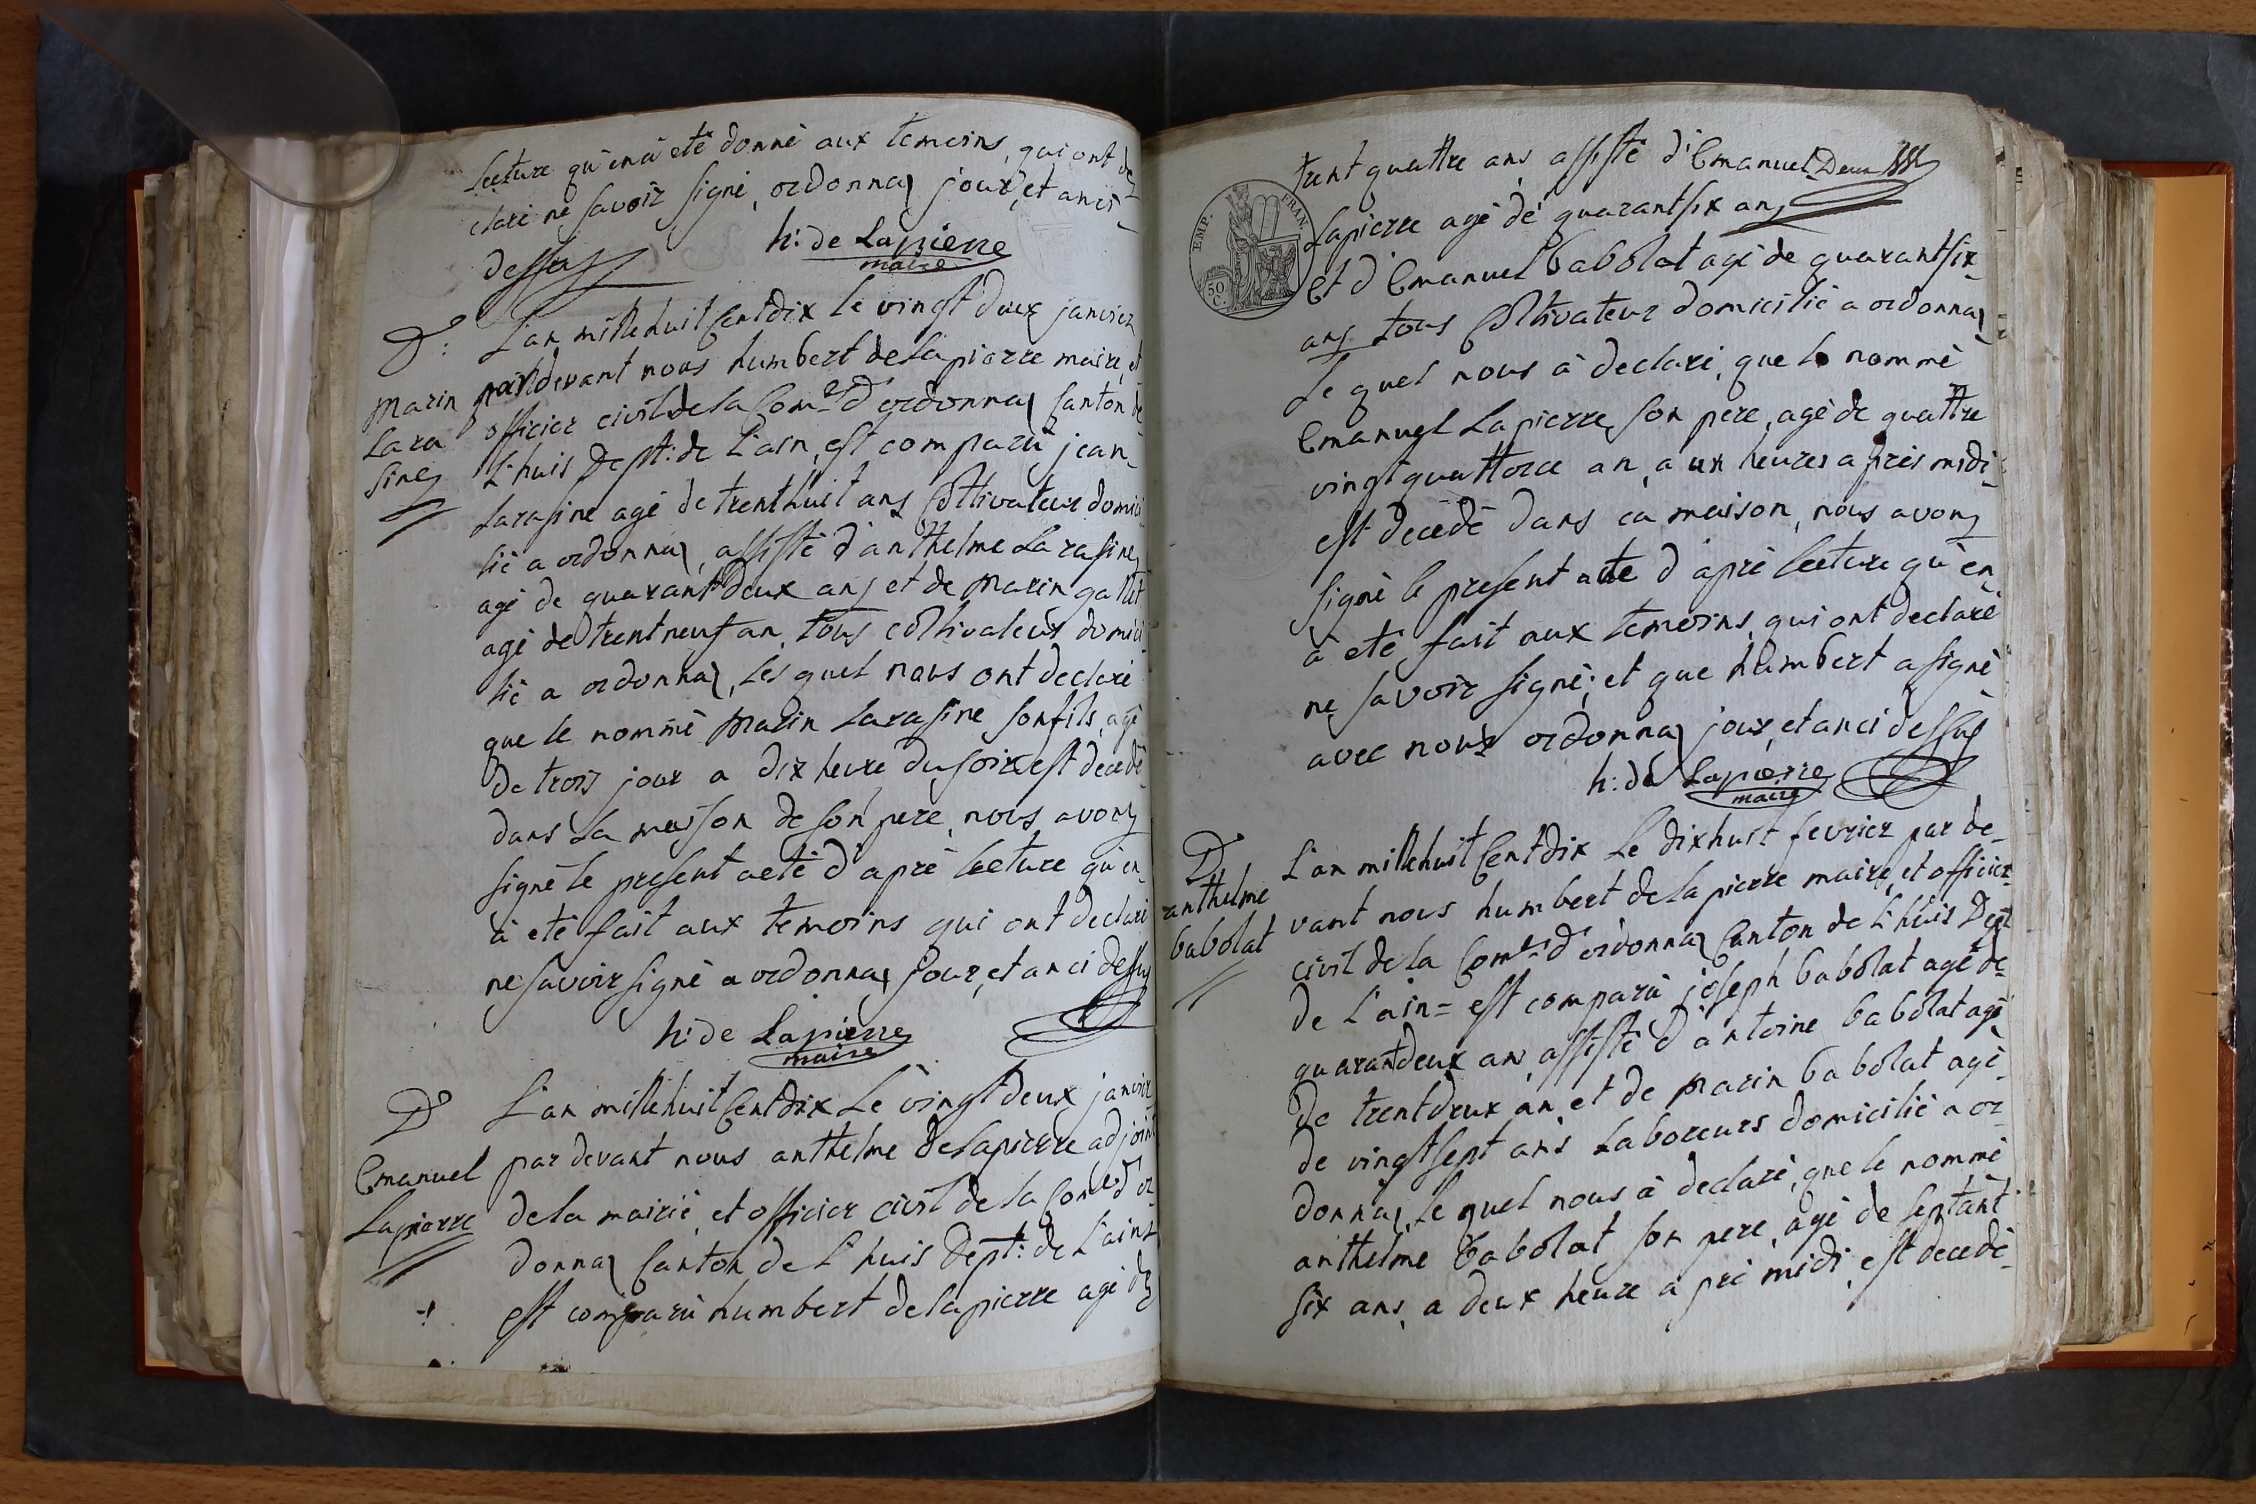 lecture qu'en a eté donné aux temoins, qui ont de
claré ne savoir signé, ordonnaz jour, et an ci
dessus
h: de Lapierre
maire
D:
Marin
Lara
sine
L'an mille huit Cent dix le vingt deux janvier
pardevant nous humbert delapierre maire, et
officier civil de la Com.e d'ordonnaz Canton de
L'huis Dept: de L'ain, est comparu jean
Larasine agé de trenthuit ans Coltivateur domici
lié a ordonnaz, assisté d'anthelme Larasine
agé de quarant Deux ans et de Marin gallet
agé de trentneuf an, tous coltivateur domici
lié a ordonnaz, Les quel nous ont declaré
que le nommé Marin Larasine son fils, agé
de trois jour a dix heure du soir est decedé
dans La maison de son pere, nous avons
signé le present acte d'apré lecture qu'en
à eté fait aux temoins qui ont declaré
ne savoir signé a ordonnaz Jour, et an ci dessus
h: de Lapierre
maire
D
Emanuel
Lapierre
L'an mille huit Cent dix Le vingt deux janvier
par devant nous anthelme delapierre adjoint
de la mairie, et officier civil de la Com.e d'or
donnaz Canton de L'huis Dept: de L'ain
est comparu humbert delapierre agé de
EMP. FRAN.
50
C.
trent quattre ans, assisté d'Emanuel De
Lapierre agé de quarantsix ans
Et d'Emanuel babolat agé de quarantsix
ans tous Coltivateur domicilié a ordonnaz
Le quel nous à declaré, que le nommé
Emanuel Lapierre, son pere, agé de quattre
vingt quattorce an, a un heures aprés midi
est decedé dans ca maison, nous avons
signé le present acte d'apré lecture qu'en
à eté fait aux temoins, qui ont declaré
ne savoir signé; et que humbert a signé
avec nous ordonnaz jour, et an ci dessus
h: de Lapierre
maire
D
anthelme
babolat
L'an mille huit Cent dix Le dixhuit fevrier par de
vant nous humbert de la pierre maire, et officier
civil de la Com.e d'ordonnaz Canton de L'huis Dept
de L'ain = est comparu joseph babolat agé de
quarantdeux ans, assisté d'antoine babolat agé
de trentdeux an, et de Marin babolat agé
de vingtsept ans Laboreurs domicilié a or
donnaz, Le quel nous à declaré, que le nommé
anthelme babolat son pere, agé de septant
six ans, a deux heure apré midi, est decedé